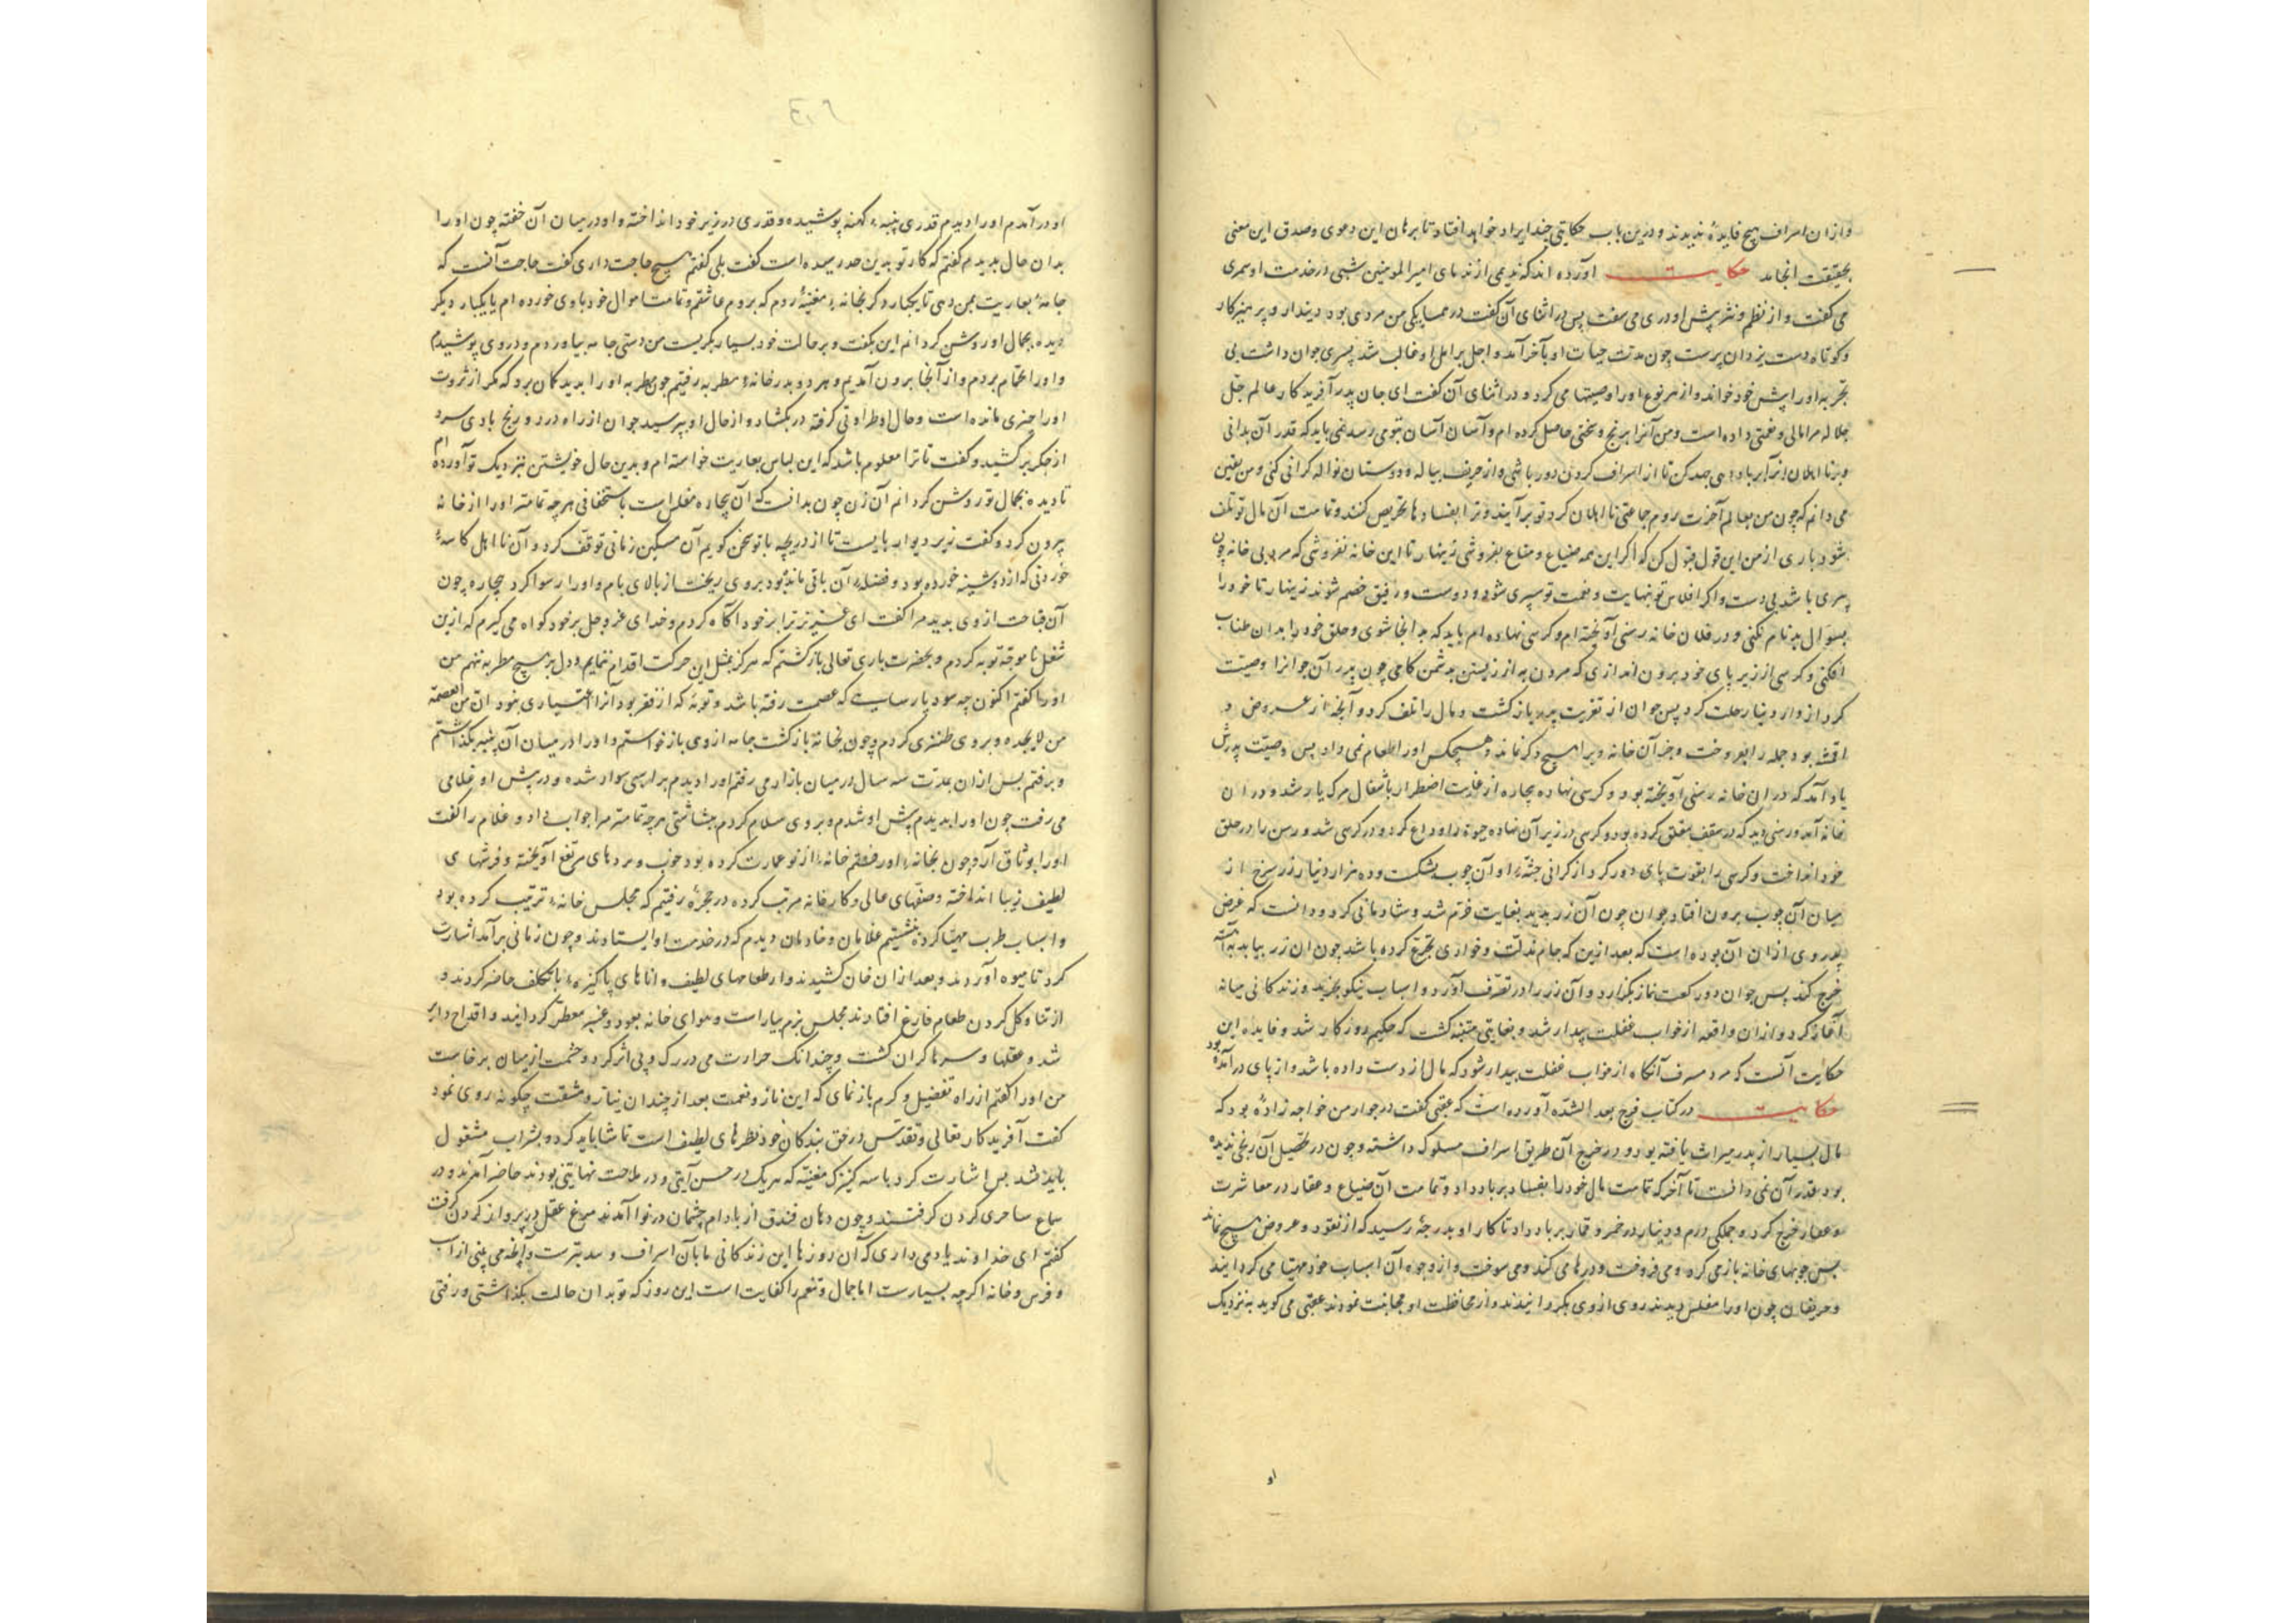 وازان اسراف هیچ فایدهٔ ندیدند و درین باب حکایتی چند ایراد خواهد افتاد تا برهان این دعوی و صدق این معنی
بحقیقت انجامد حکایت آورده اند که ندیمی از ندمای امیرالمومنین شبی در خدمت او سمری
می کفت و از نظم و نثر پیش او دری می سفت پس در اثنای آن کفت در همسایکی من مردی بود دیندار و پرهیزکار
و کوتاه دست یزدان پرست چون مدت حیات او بآخر آمد و اجل بر امل او غالب شد پسری جوان داشت بی
تجربه او را پیش خود خواند و از هر نوع او را وصیتها می کرد و در اثنای آن کفت ای جان پدر آفریدکار عالم جل
جلاله مرا مالی و نعمتی داده است و من آنرا برنج و سختی حاصل کرده ام و آسان آسان بتو می رسد نمی باید که قدر آن بدانی
و با نا اهلان آنرا بر باد دهی جهد کن تا از اسراف کردن دور باشی و از حریف پیاله و دوستان نواله کرانی کنی و من یقین
می دانم که چون من بعالم آخرت روم جماعتی نا اهلان کرد تو برآیند و ترا بفسادها تحریص کنند و تمامت آن مال تو تلف
شود باری از من این قول قبول کن که اکر این همه ضیاع و متاع بفروشی زینهار تا این خانه نفروشی که مرد بی خانه چون
سری باشد بی دست و اکر افلاس تو بنهایت و نعمت تو سپری شود و دوست و رفیق خصم شوند زینهار تا خود را
بسوال بدنام نکنی و در فلان خانه رسنی آویخته ام و کرسی نهاده ام باید که بدانجا شوی و حلق خود را بدان طناب
افکنی و کرسی از زیر پای خود بیرون اندازی که مردن به از زیستن بدشمن کامی چون پدر آن جوانرا وصیت
کرد از دار دنیا رحلت کرد پس جوان از تعزیت پدر باز کشت و مال را تلف کرد و آنچه از عروض و
اقمشه بود جمله را بفروخت و جز آن خانه ویرا هیچ دکر نماند و هیچکس او را طعام نمی داد پس وصیت پدرش
یاد آمد که در ان خانه رسنی آویخته بود و کرسی نهاده بیچاره از غایت اضطرار باشغال مرک یار شد و در ان
خانه آمد و رسنی دید که در سقف معلق کرده بود و کرسی در زیر آن نهاده حیوة را وداع کرد و در کرسی شد و رسن را در حلق
خود انداخت و کرسی را بقوت پای دور کرد از کرانی جثهٔ او آن چوب بشکست و ده هزار دینار زر سرخ از
میان آن چوب بیرون افتاد جوان چون آن زر بدید بغایت خرم شد و شادمانی کرد و دانست که غرض
پدر وی ازان آن بوده است که بعد ازین که جام مذلت و خواری تجرع کرده باشد چون ان زر بیابد به آهسته
خرج کند پس جوان دو رکعت نماز بکزارد و آن زر را در تصرف آورد و اسباب نیکو بخرید و زندکانی میانه
آغاز کرد و ازان واقعه از خواب غفلت بیدار شد و بغایتی متنبه کشت که حکیم روزکار شد و فایده این
حکایت آنست که مرد مسرف آنکاه از خواب غفلت بیدار شود که مال از دست داده باشد و از پای درآمده بود
حکایت در کتاب فرج بعد الشده آورده است که عقبی کفت در جوار من خواجه زادهٔ بود که
مال بسیار از پدر میراث یافته بود و در خرج آن طریق اسراف مسلوک داشته و چون در تحصیل آن رنجی ندیده
بود قدر آن نمی دانست تا آخر که تمامت مال خود را بفساد بر باد داد و تمامت آن ضیاع و عقار در معاشرت
و عقار خرج کرد و جملکی درم و دینار در خمر و قمار بر باد داد تا کار او بدرجهٔ رسید که از نقود و عروض هیچ نماند
پس چوبهای خانه باز می کرد و می فروخت و درها می کند و می سوخت و از وجوه آن اسباب خود مهیا می کردانید
و حریفان چون او را مفلس دیدند روی از وی بکردانیدند و از محافظت او مجانبت نمودند عقبی می کوید به نزدیک
او
او درآمدم او را دیدم قدری پنبهٔ کهنه پوشیده و قدری در زیر خود انداخته و او در میان آن خفته چون او را
بدان حال بدیدم کفتم که کار تو بدین حد رسیده است کفت بلی کفتم هیچ حاجت داری کفت حاجت آنست که
جامهٔ بعاریت بمن دهی تا یکبار دکر بخانهٔ مغنیهٔ روم که بر وم عاشقم و تمامت اموال خود با وی خورده ام تا یکبار دیکر
دیده بجمال او روشن کردانم این بکفت و بر حالت خود بسیار بکریست من دستی جامه بیاوردم و در وی پوشیدم
و او را بحمام بردم و از آنجا برون آمدیم و هر دو بدر خانهٔ مطربه رفتیم چون مطربه او را بدید کمان برد که مکر از ثروت
او را چیزی مانده است و حال او طراوتی کرفته در بکشاد و از حال او بپرسید جوان از راه درد و رنج بادی سرد
از جکر برکشید و کفت تا ترا معلوم باشد که این لباس بعاریت خواسته ام و بدین حال خویشتن نزدیک تو آورده ام
تا دیده بجمال تو روشن کردانم آن زن چون بدانست که آن بیچاره مفلس است باستخفافی هر چه تمامتر او را از خانه
بیرون کرد و کفت زیر دیوار بایست تا از دریچه با تو سخن کویم آن مسکین زمانی توقف کرد و آن نا اهل کاسهٔ
خوردنی که از دوشینه خورده بود و فضلهٔ آن باقی مانده بود بروی ریخت از بالای بام و او را رسوا کرد بیچاره چون
آن قباحت از وی بدید مرا کفت ای عزیز ترا بر خود آکاه کردم و خدای عز و جل بر خود کواه می کیرم که ازین
شغل ناموجه توبه کردم و بحضرت باری تعالی باز کشتم که هرکز بمثل این حرکت اقدام ننمایم و دل بر هیچ مطربه ننهم من
او را کفتم اکنون چه سود پارسایی که عصمت رفته باشد و توبهٔ که از فقر بود آنرا اعتباری نبود ان من العصمة
من لا یجده و بروی طنزی کردم و چون بخانهٔ باز کشت جامه از وی باز خواستم و او را در میان آن پنبه بکذاشتم
و برفتم پس ازان بمدت سه سال در میان بازار می رفتم او را دیدم بر اسبی سوار شده و در پیش او غلامی
می رفت چون او را بدیدم پیش او شدم و بروی سلام کردم بشاشتی هر چه تمامتر مرا جواب داد و غلام را کفت
او را بوثاق آر چون بخانهٔ او رفتم خانهٔ از نو عمارت کرده بود خوب و پردهای مرتفع آویخته و فرشهای
لطیف زیبا انداخته و صفهای عالی و کارخانه مرتب کرده در حجرهٔ رفتیم که مجلس خانهٔ ترتیب کرده بود
و اسباب طرب مهیا کرده بنشستیم غلامان و خادمان دیدم که در خدمت او ایستادند و چون زمانی برآمد اشارت
کرد تا میوه آوردند و بعد ازان خان کشیدند و از طعامهای لطیف و اناهای پاکیزهٔ با تکلف حاضر کردند و
از تناول کردن طعام فارغ افتادند مجلس بزم بیاراست و هوای خانه بعود و عنبر معطر کردانید و اقداح دایر
شد و عقلها و سرها کران کشت و چندانک حرارت می در رک و پی اثر کرد و حشمت از میان برخاست
من او را کفتم از راه تفضیل و کرم باز نمای که این ناز و نعمت بعد از چندان نیاز و مشقت چکونه روی نمود
کفت آفریدکار تعالی و تقدس در حق بندکان خود نظرهای لطیف است تماشا باید کرد و بشراب مشغول
باید شد پس اشارت کرد با سه کنیزک مغنیه که هر یک در حسن آیتی و در ملاحت نهایتی بودند حاضر آمدند و در
سماع ساحری کردن کرفتند و چون دهان فندق از بادام چشمان در نوا آمدند مرغ عقل در پرواز کردن کرفت
کفتم ای خداوند یاد می داری که آن روزها این زندکانی ما بآن اسراف و سد بترست و آنچه می بینی از اسب
و فرس و خانه اکرچه بسیارست اما جمال و تنعم را کفایت است این روز که تو بدان حالت بکذاشتی و رفتی